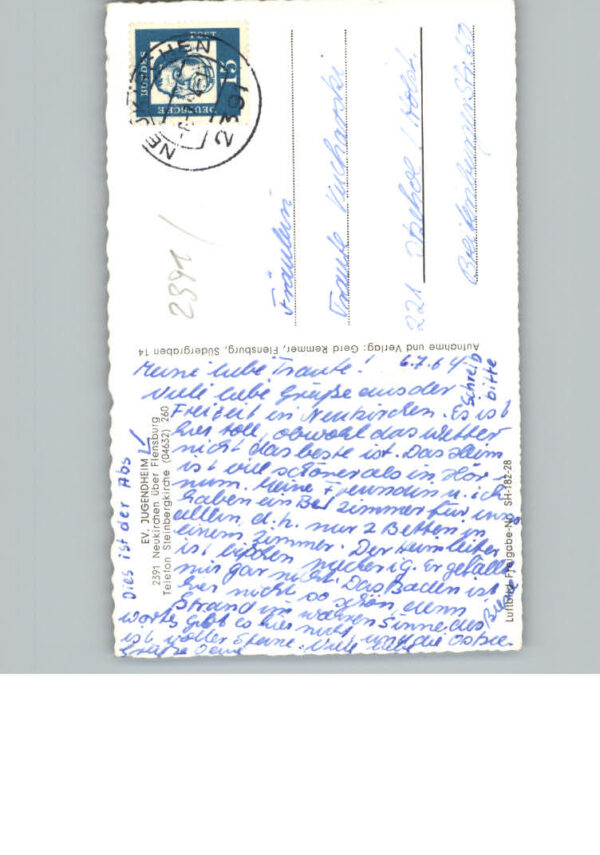 DEUTSCHE
BUNDESPOST
15
2391
2391
Fräulein
Traute
221 Itzehoe / Holst.
Breitenburgerstr. 60
Aufnahme und Verlag: Gerd Remmer, Flensburg, Südergraben 14
Meine liebe Traute! 6.7.64
Viele liebe Grüße aus der
Freizeit in Neukirchen. Es ist
hier toll, obwohl das Wetter
nicht das beste ist. Das Heim
ist viel schöner als in Hör-
num. Meine Freundin u. ich
haben ein Bez zimmer für uns
allein, d.h. nur 2 Betten in
einem Zimmer. Der Heimleiter
ist bißchen Er gefällt
mir gar nicht. Das Baden ist
hier nicht so schön, denn
Strand im wahren Sinne des
Wortes gibt es hier nicht, und die Ostsee
ist voller Steine. Viele liebe
Grüße Deine
Schreib
bitte
Dies ist der Abs
EV. JUGENDHEIM
2391 Neukirchen über Flensburg
Telefon Steinbergkirche (04632) 260
Luftbild-Freigabe-No SH-182-28